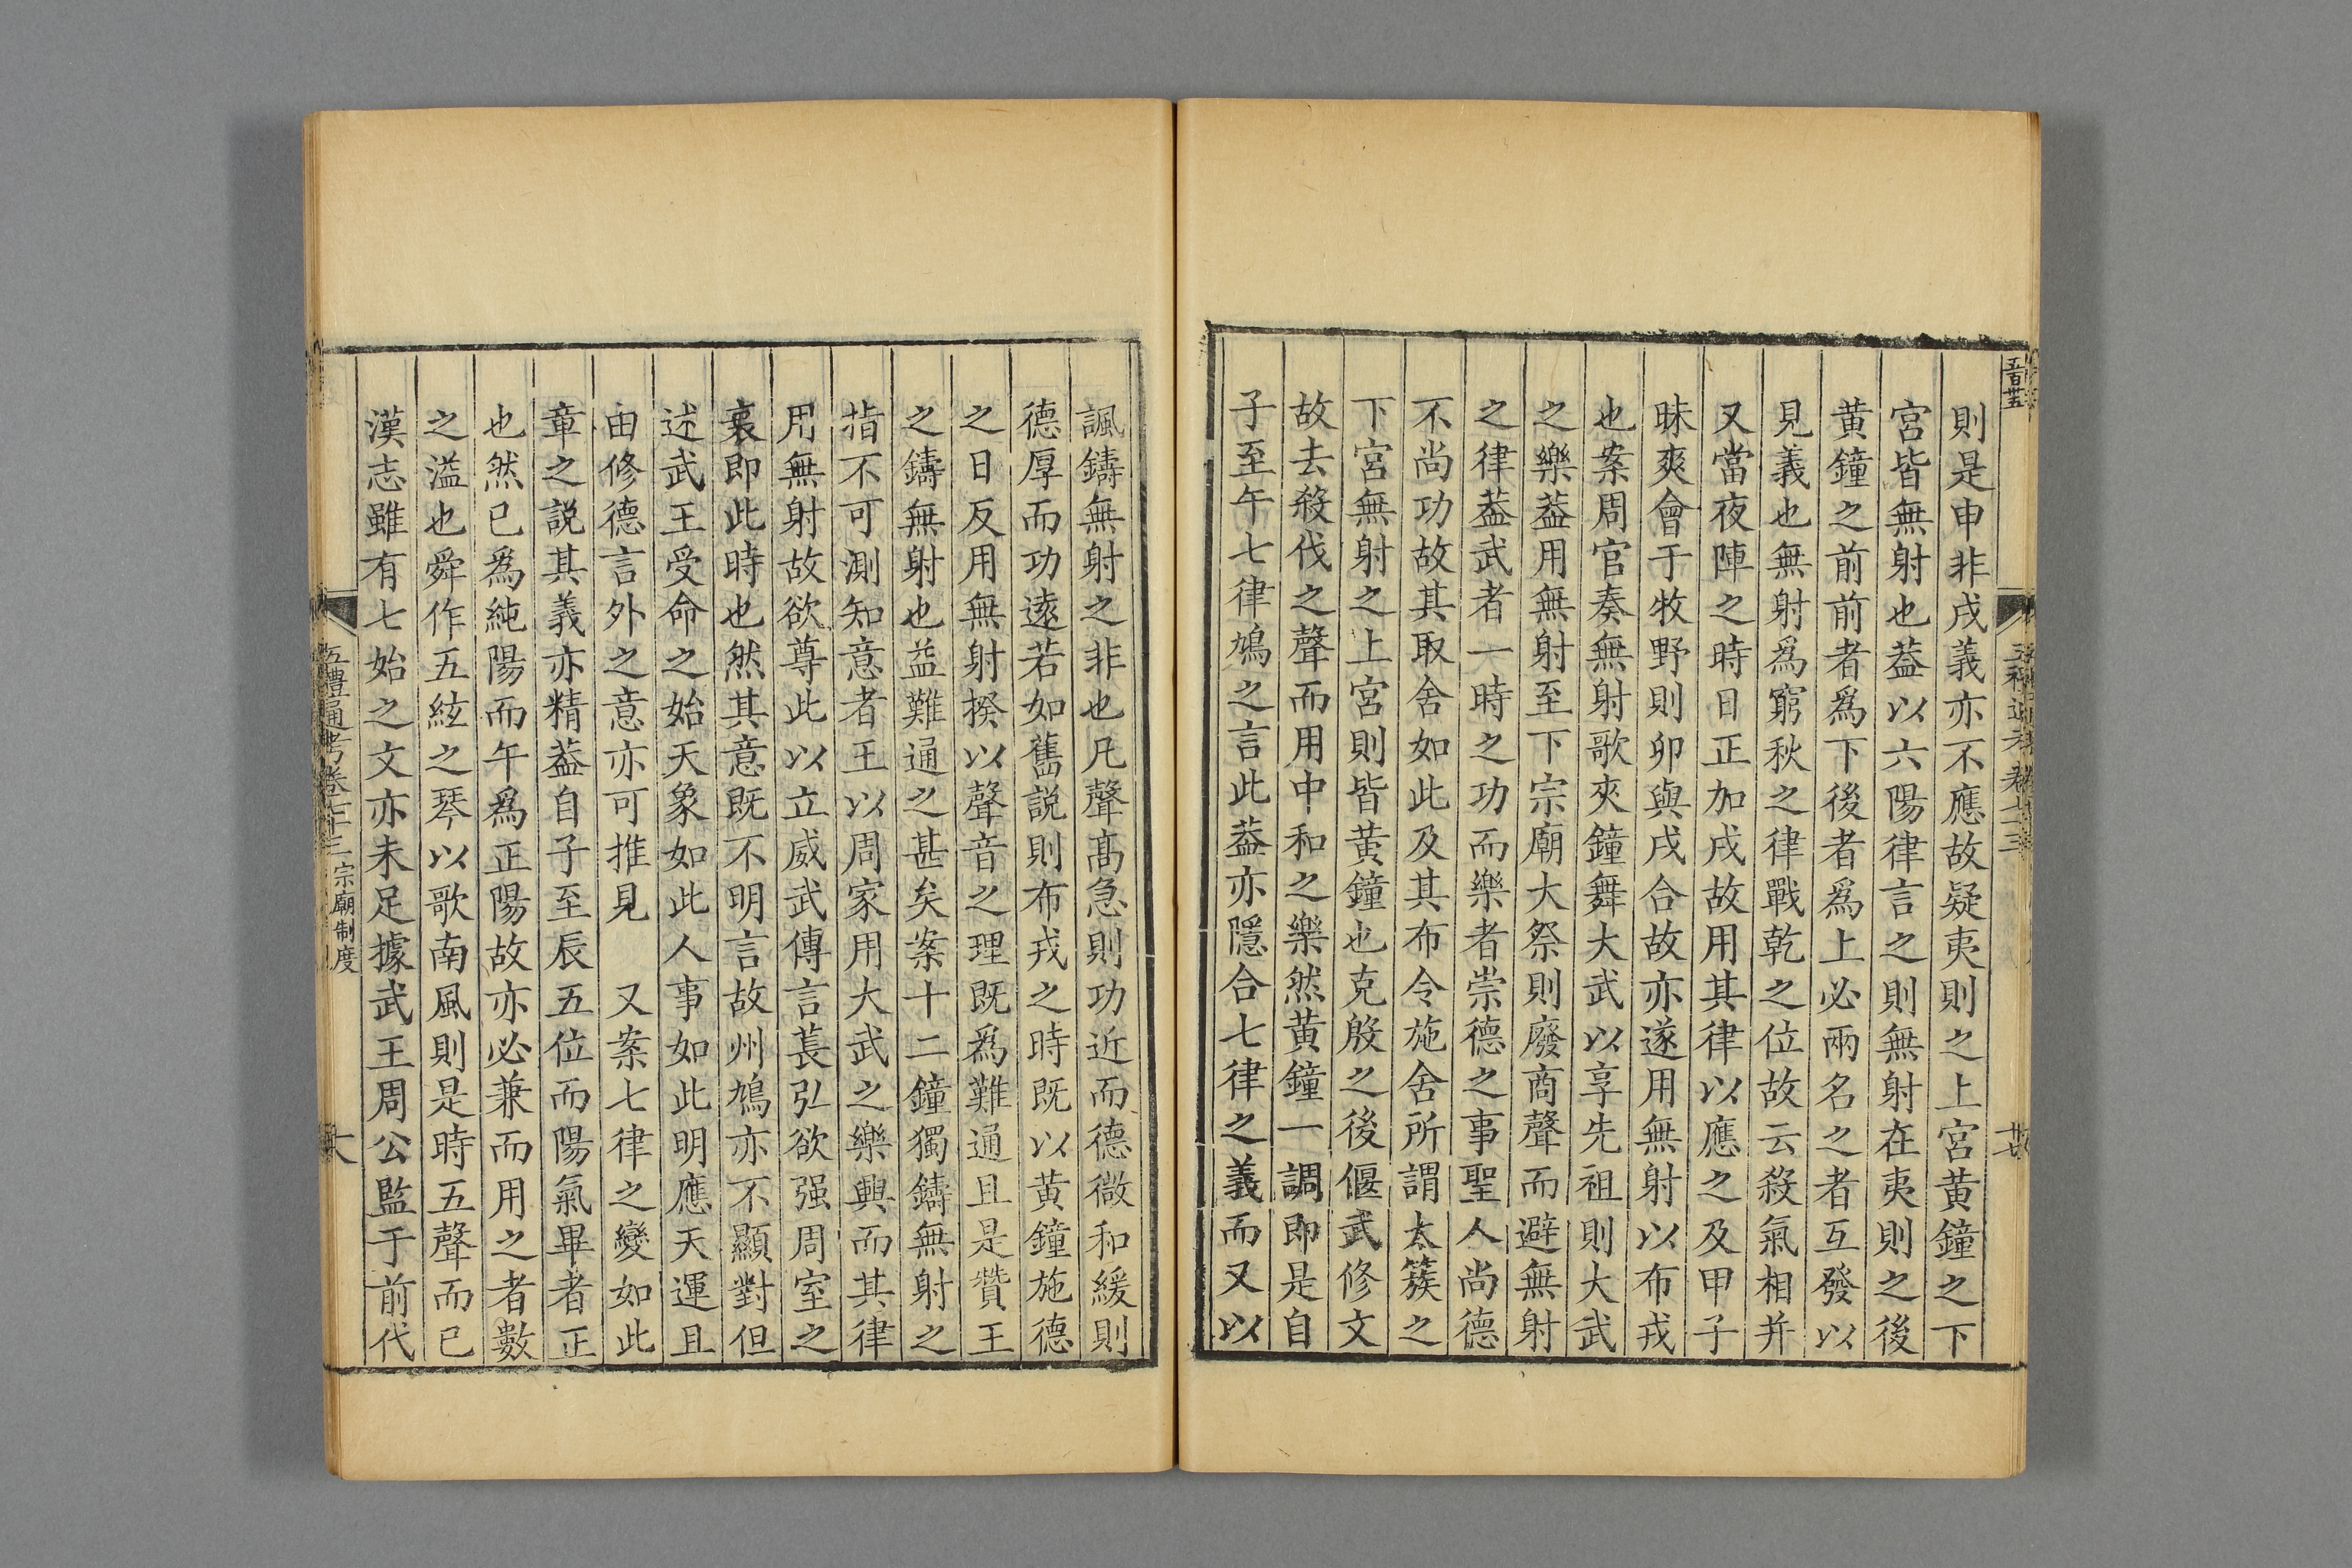 則是申非戌義亦不應故疑夷則之上宮黃鐘之下
宮皆無射也葢以六陽律言之則無射在夷則之後
黃鐘之前前者爲下後者爲上必兩名之者互發以
見義也無射爲窮秋之律戰乾之位故云殺氣相并
又當夜陣之時日正加戌故用其律以應之及甲子
昧爽會于牧野則卯與戌合故亦遂用無射以布戎
也案周官奏無射歌夾鐘舞大武以享先祖則大武
之樂葢用無射至下宗廟大祭則廢商聲而避無射
之律葢武者一時之功而樂者崇德之事聖人尚德
不尚功故其取舍如此及其布令施舍所謂太簇之
下宮無射之上宮則皆黃鐘也克殷之後偃武修文
故去殺伐之聲而用中和之樂然黃鐘一調即是自
子至午七律鳩之言此葢亦隱合七律之義而又以
諷鑄無射之非也凡聲髙急則功近而德微和緩則
德厚而功遠若如舊説則布戎之時既以黃鐘施德
之日反用無射揆以聲音之理既爲難通且是贊王
之鑄無射也益難通之甚矣案十二鐘獨鑄無射之
指不可測知意者王以周家用大武之樂興而其律
用無射故欲尊此以立威武傳言萇弘欲强周室之
裏即此時也然其意既不明言故州鳩亦不顯對但
述武王受命之始天象如此人事如此明應天運且
由修德言外之意亦可推見　又案七律之變如此
章之説其義亦精葢自子至辰五位而陽氣畢者正
也然已爲純陽而午爲正陽故亦必兼而用之者數
之溢也舜作五絃之琴以歌南風則是時五聲而已
漢志雖有七始之文亦未足據武王周公監于前代
五禮通考卷七十三 宗廟制度